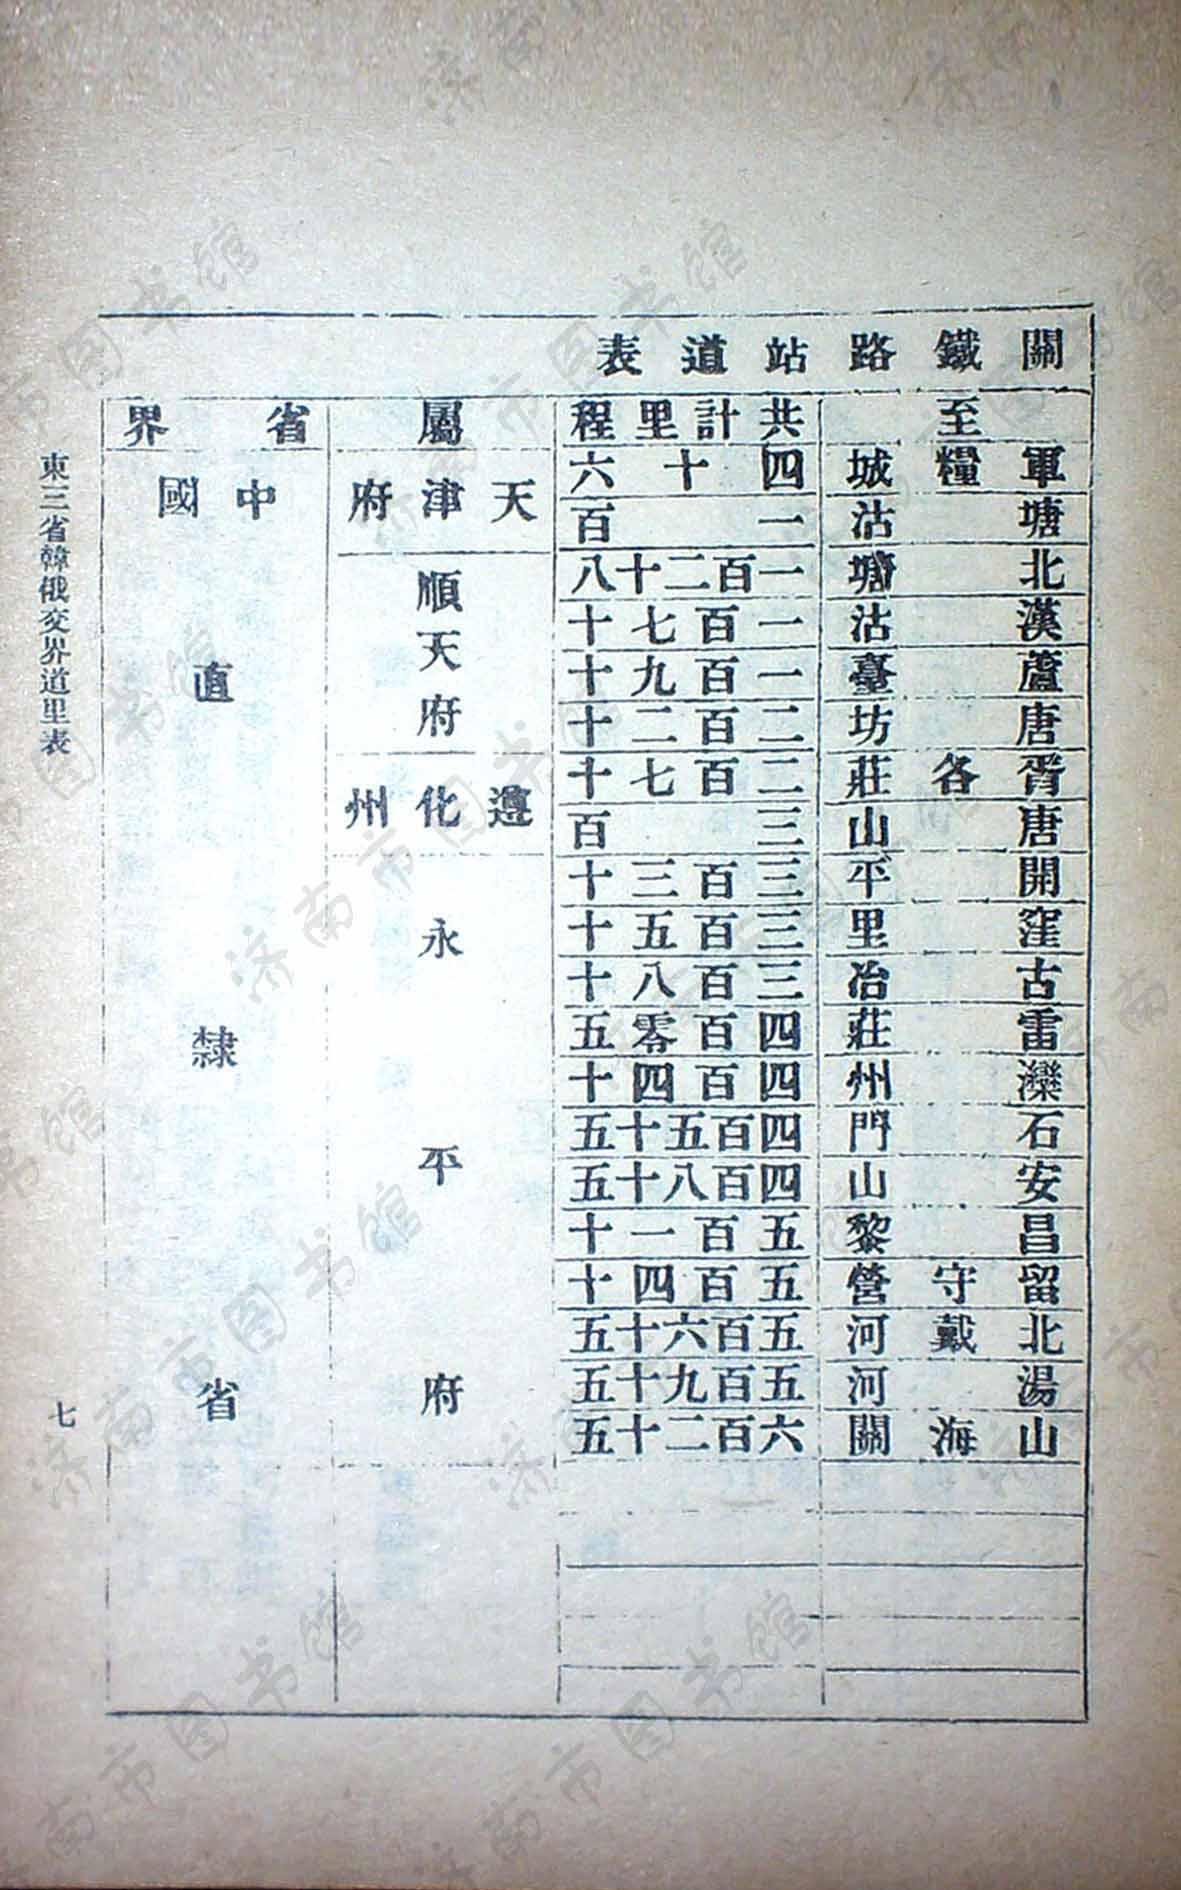 關鐵路站道表
至 共計里程 屬 省界
軍糧城 四十六 天津府 中國直隸省
塘沽 一百
北塘 一百二十八 順天府
漢沽 一百七十
蘆臺 一百九十
唐坊 二百二十
胥各莊 二百七十 遵化州
唐山 三百
開平 三百三十 永平府
窪里 三百五十
古冶 三百八十
雷莊 四百零五
灤州 四百四十
石門 四百五十五
安山 四百八十五
昌黎 五百一十
留守營 五百四十
北戴河 五百六十五
湯河 五百九十五
山海關 六百二十五
東三省韓俄交界道里表
七
济南市图书馆